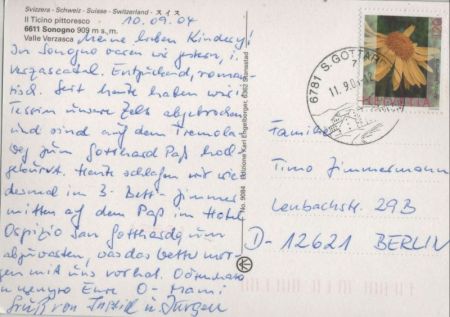 Svizzera - Schweiz - Suisse - Switzerland - スイス
Il Ticino pittoresco
6611 Sonogno 909 m s.m.
Valle Verzasca
10.09.04
Meine lieben Kinder!
In Sonogno waren wir gestern, i.
Verzascatal. Entzückend, roman-
tisch. Seit heute haben wir i.
Tessin unsere Zelte abgebrochen
und sind auf dem Tremola-
Weg zum Gotthard Paß hoch-
Heute schlafen wir wie-
dermal im 3-Bett-Zimmer
mitten auf dem Paß im Hotel
Ospizio San Gotthardo um
abzuwarten, was das Wetter mor-
gen mit uns vorhat.
Eure O-Mami
Gruß von Ingrid u. Jürgen
No. 9084 Edizione Karl Engelberger, 6362 Stansstad
6781 S. GOTTARDO
11.9.04
HELVETIA
Familie
Timo Zimmermann
Lenbachstr. 29B
D-12621 BERLIN